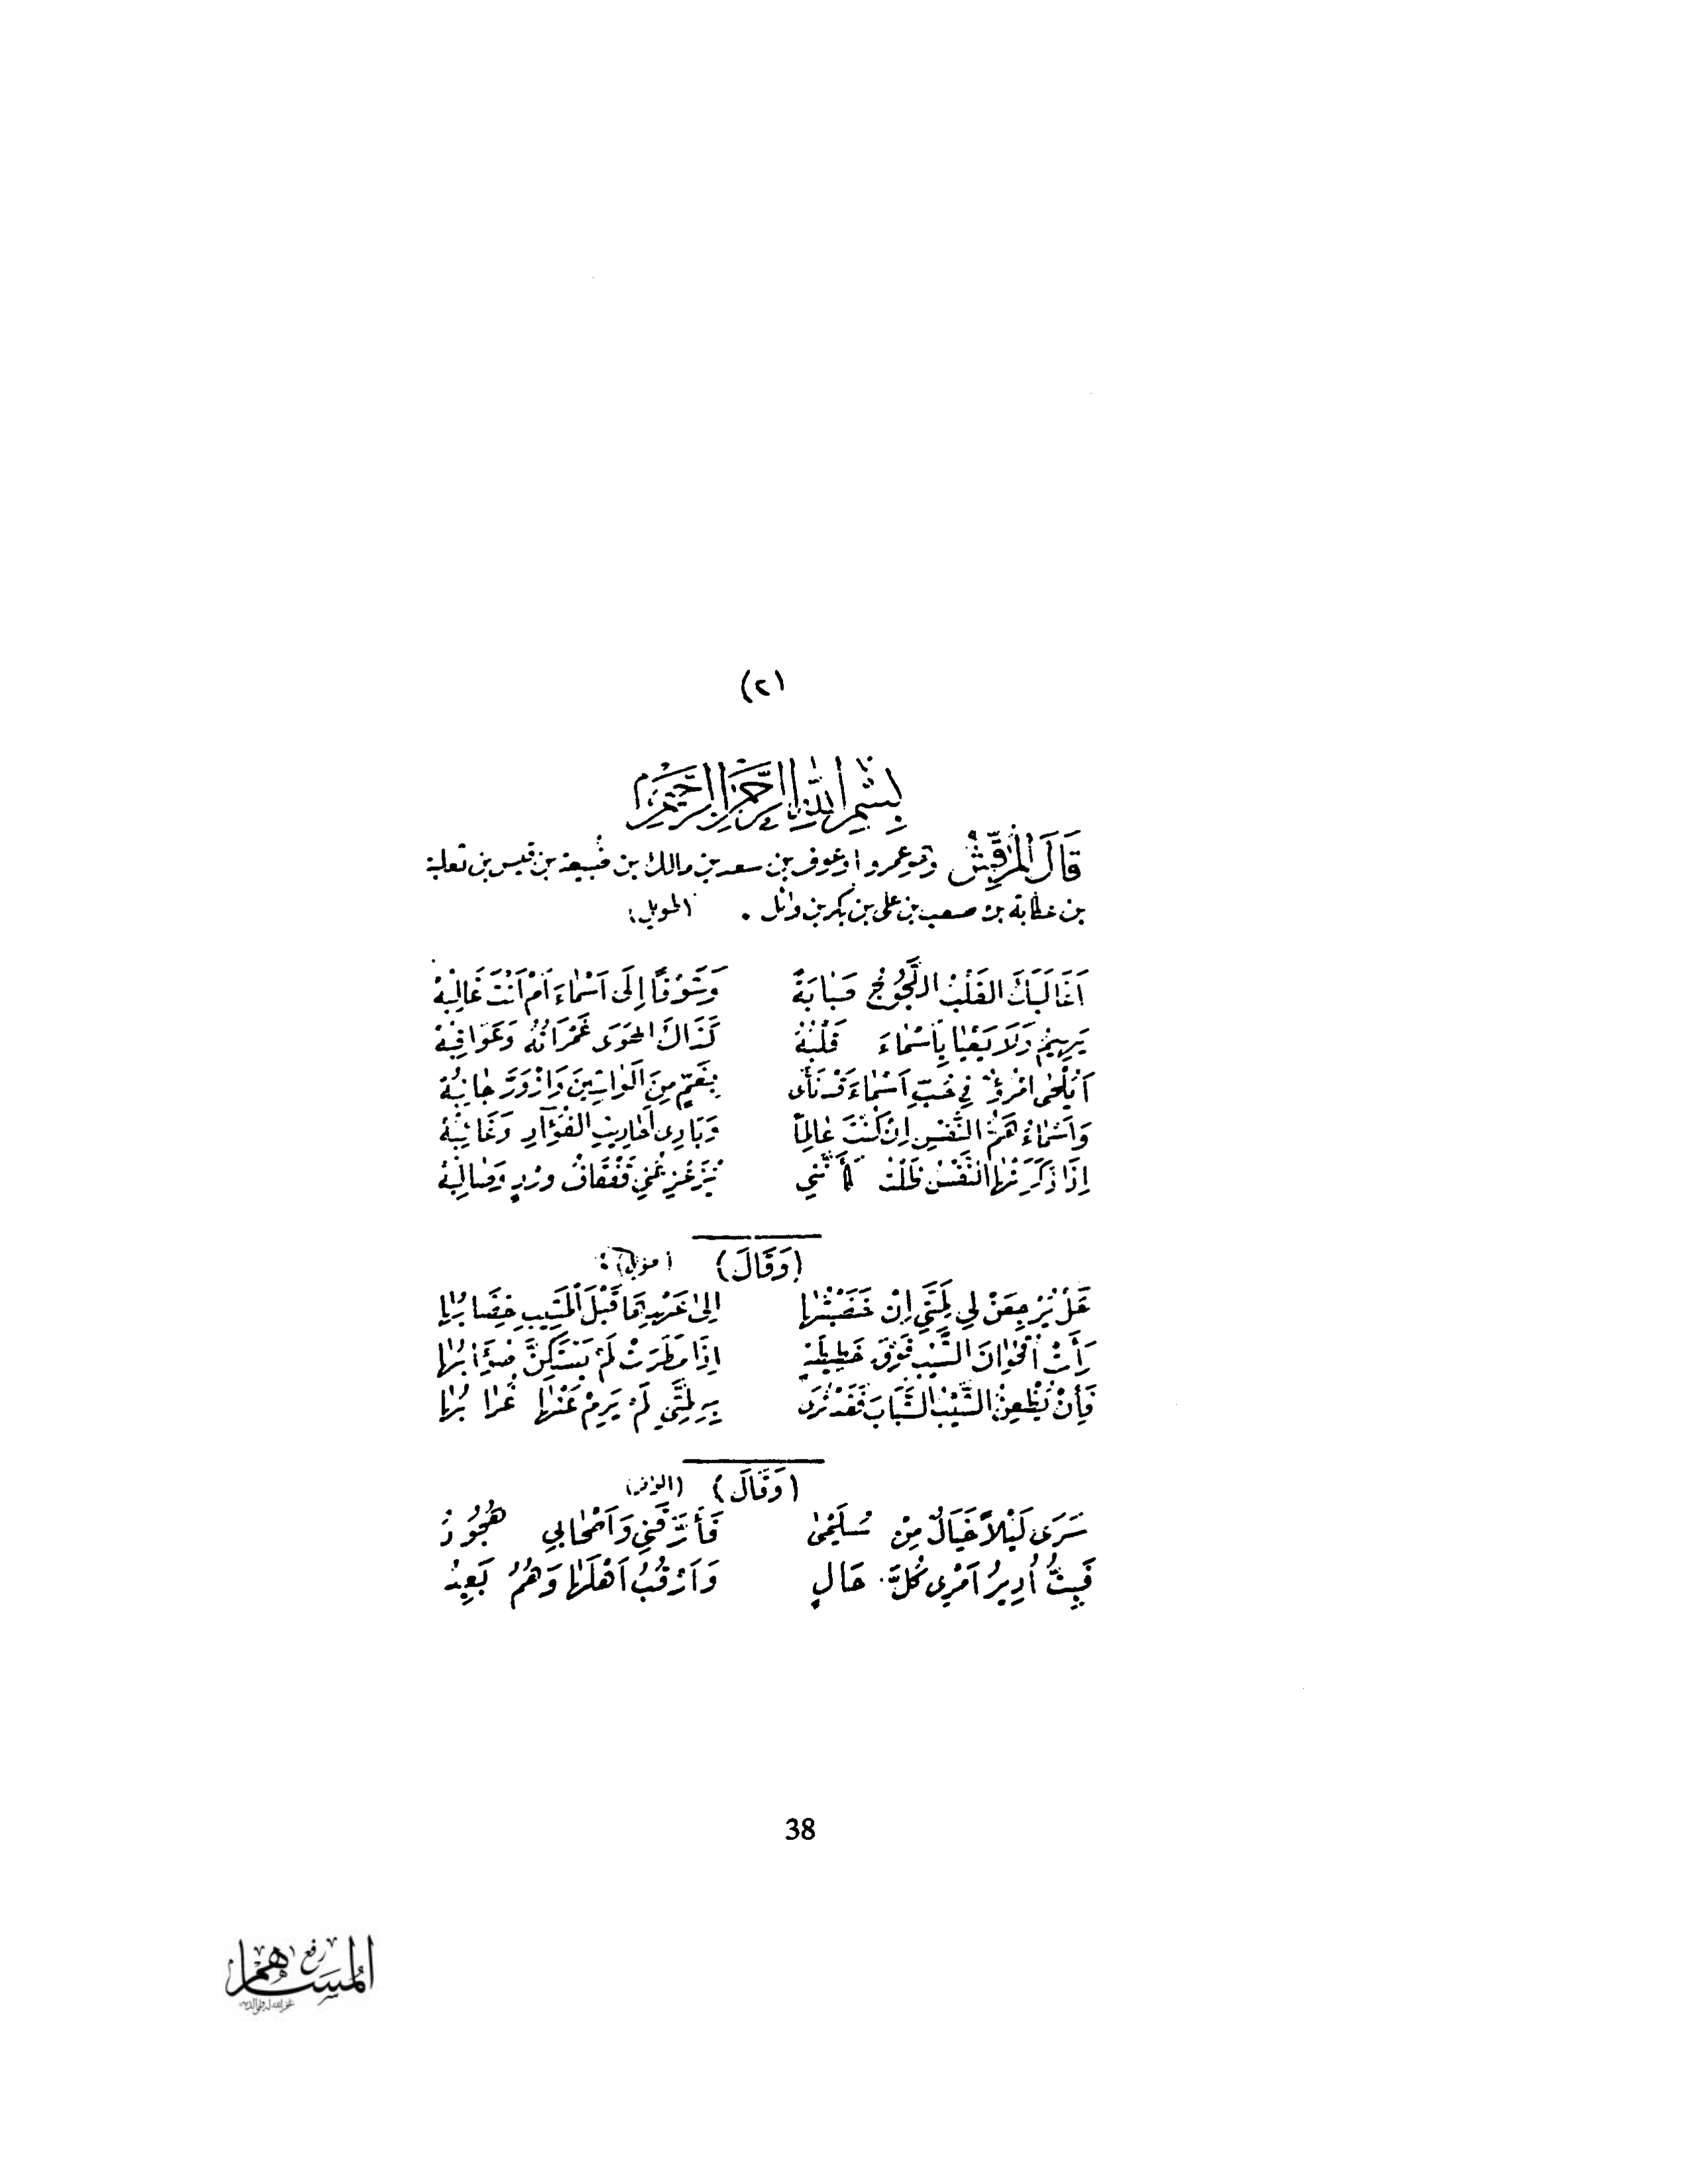 (٢)
بِسْمِ اللَّهِ الرَّحْمٰنِ الرَّحِيمِ
قَالَ المُرَقِّشُ وهو عمرو او عوف بن سعد بن مالك بن ضُبيعة بن قيس بن ثعلبة
بن عكابة بن صعب بن على بن بكر بن وائل . (الطويل)
أَغَالَبَكَ القَلْبُ اللَّجُوجُ صَبَابَةً وَشَوْقًا إِلَى أَسْمَاءَ أَمْ أَنْتَ غَالِبُهْ
يَهِيمُ وَلَا يَعْيَا بِأَسْمَاءَ قَلْبُهُ كَذَاكَ الهَوَى إِمْرَارُهُ وَعَوَاقِبُهْ
أَيُلْحَى امْرُؤٌ فِي حُبِّ أَسْمَاءَ قَدْ نَأَى بِغَمٍّ مِنَ الوَاشِينَ وَازْوَرَّ جَانِبُهْ
وَأَسْمَاءُ هَمُّ النَّفْسِ إِنْ كُنْتَ عَالِمًا وَبَادِى أَحَادِيثِ الفُؤَادِ وَغَائِبُهْ
إِذَا ذَكَرَتْهَا النَّفْسُ ظَلْتُ كَأَنَّنِي يُزَعْزِعُنِي قَفْقَافُ وِرْدٍ وَصَالِبُهْ
(وَقَالَ) (طويل):
هَلْ يَرْجِعَنْ لِي لِمَّتِي إِنْ خَضَبْتُهَا إِلَى عَهْدِهَا قَبْلَ المَشِيبِ خِضَابُهَا
رَأَتْ أُقْحُوَانَ الشَّيْبِ فَوْقَ خَطِيطَةٍ إِذَا مُطِرَتْ لَمْ يَسْتَكِنَّ صُؤَابُهَا
فَإِنْ يُظْعِنُ الشَّيْبُ الشَّبَابَ فَقَدْ تُرَى بِهِ لِمَّتِي لَمْ يُرْمَ عَنْهَا غُرَابُهَا
(وَقَالَ) (الوافر)
سَرَى لَيْلًا خَيَالٌ مِنْ سُلَيْمَى فَأَرَّقَنِي وَأَصْحَابِي هُجُودُ
فَبِتُّ أُدِيرُ أَمْرِى كُلَّ حَالٍ وَأَرْقُبُ أَهْلَهَا وَهُمُ بَعِيدُ
38
رفع
المساهم
غفر الله له ولوالديه